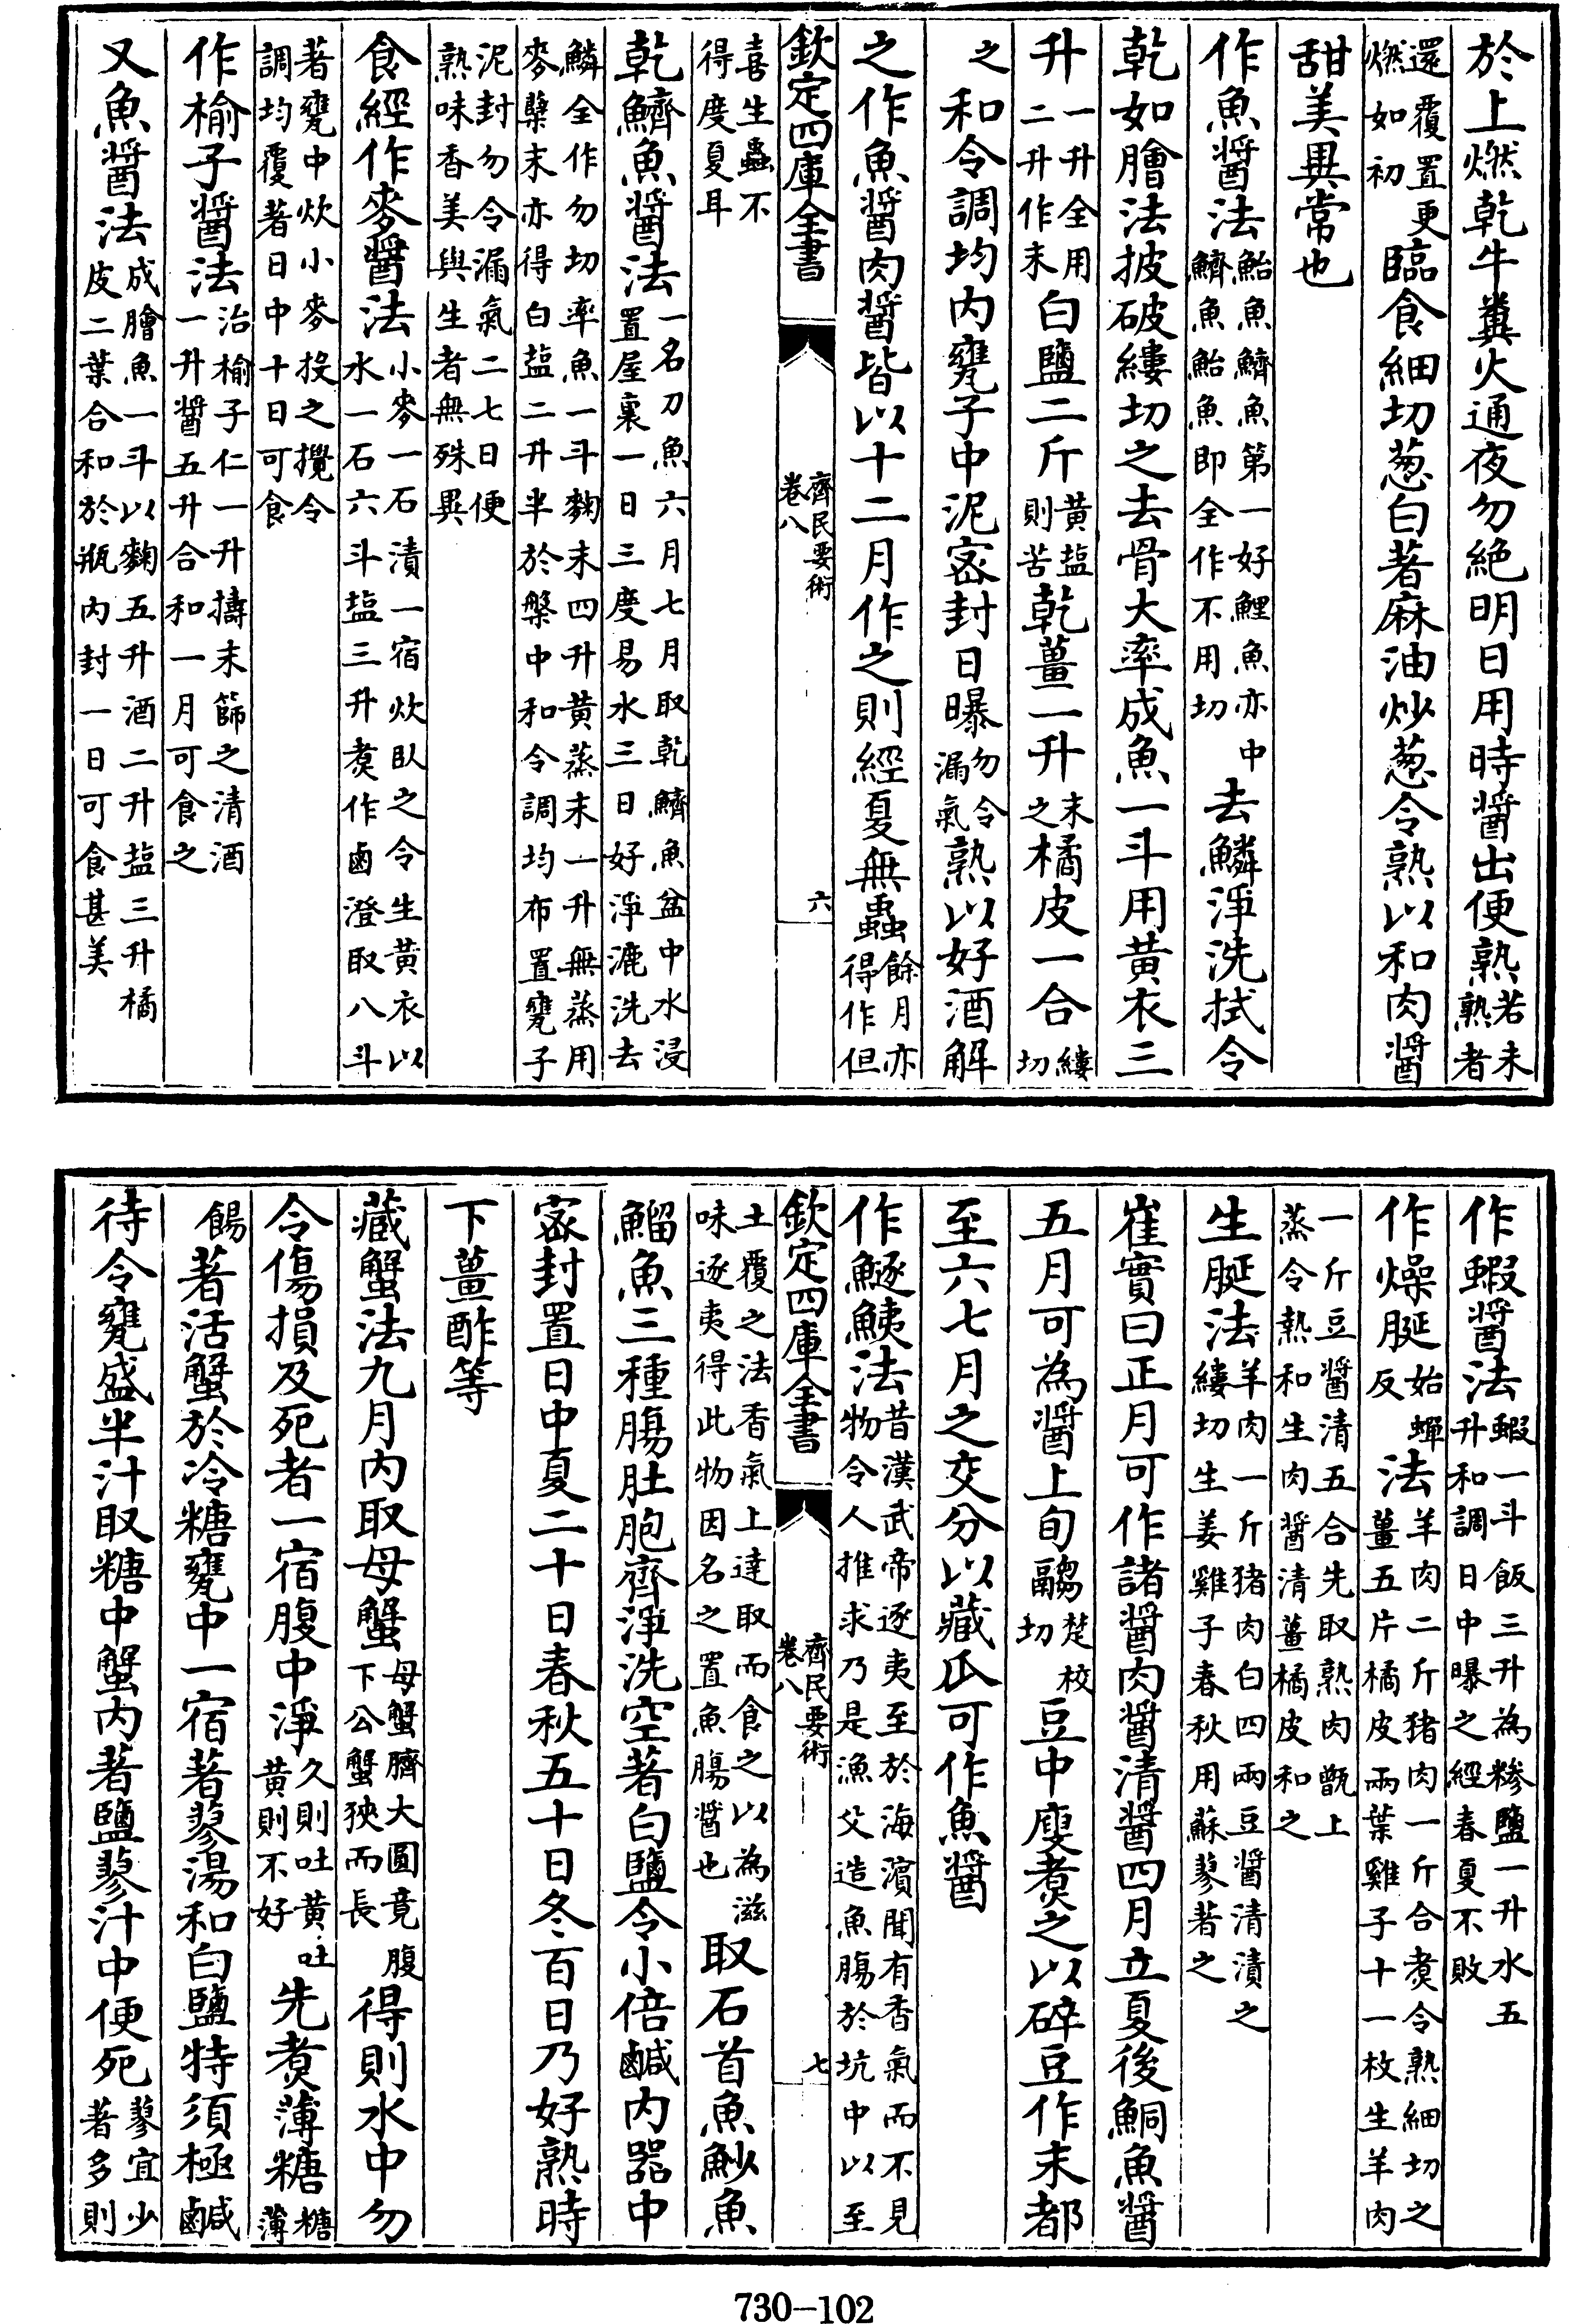 於上燃乾牛糞火通夜勿絶明日用時醬出便熟若未熟者
還覆置更燃如初臨食細切葱白著麻油炒葱令熟以和肉醬
甜美異常也
作魚醬法鮐魚鱭魚第一好鯉魚亦中鱭魚鮐魚即全作不用切去鱗淨洗拭令
乾如膾法披破縷切之去骨大率成魚一斗用黄衣三
升一升全用二升作末白鹽二斤黄塩則苦乾薑一升末之橘皮一合縷切
之和令調均内甕子中泥密封日曝勿令漏氣熟以好酒解
之作魚醬肉醬皆以十二月作之則經夏無蟲餘月亦得作但
欽定四庫全書 齊民要術卷八 六
喜生蟲不得度夏耳
乾鱭魚醬法一名刀魚六月七月取乾鱭魚盆中水浸置屋裏一日三度易水三日好淨漉洗去
鱗全作勿切率魚一斗麴末四升黄蒸末一升無蒸用麥糵末亦得白塩二升半於槃中和令調均布置甕子
泥封勿令漏氣二七日便熟味香美與生者無殊異
食經作麥醬法小麥一石漬一宿炊臥之令生黄衣以水一石六斗塩三升煑作鹵澄取八斗
著甕中炊小麥投之攪令調均覆著日中十日可食
作榆子醬法治榆子仁一升擣末篩之清酒一升醬五升合和一月可食之
又魚醬法成膾魚一斗以麴五升酒二升塩三升橘皮二葉合和於瓶内封一日可食甚美
作蝦醬法蝦一斗飯三升為糝鹽一升水五升和調日中曝之經春夏不敗
作燥脡始蟬反法羊肉二斤猪肉一斤合煑令熟細切之薑五片橘皮兩葉雞子十一枚生羊肉
一斤豆醬清五合先取熟肉甑上蒸令熟和生肉醬清薑橘皮和之
生脡法羊肉一斤猪肉白四兩豆醬清漬之縷切生姜雞子春秋用蘇蓼著之
崔實曰正月可作諸醬肉醬清醬四月立夏後鮦魚醬
五月可為醬上旬䰞楚校切豆中庱煑之以碎豆作末都
至六七月之交分以藏瓜可作魚醬
作鱁鮧法昔漢武帝逐夷至於海濱聞有香氣而不見物令人推求乃是漁父造魚腸於坑中以至
欽定四庫全書 齊民要術卷八 七
土覆之法香氣上達取而食之以為滋味逐夷得此物因名之置魚腸醬也取石首魚魦魚
鰡魚三種腸肚胞齊淨洗空著白鹽令小倍鹹内器中
密封置日中夏二十日春秋五十日冬百日乃好熟時
下薑酢等
藏蟹法九月内取母蟹母蟹臍大圓竟腹下公蟹狹而長得則水中勿
令傷損及死者一宿腹中淨久則吐黄吐黄則不好先煑薄糖糖薄
餳著活蟹於冷糖甕中一宿著蓼湯和白鹽特須極鹹
待令甕盛半汁取糖中蟹内著鹽蓼汁中便死蓼宜少著多則
730-102